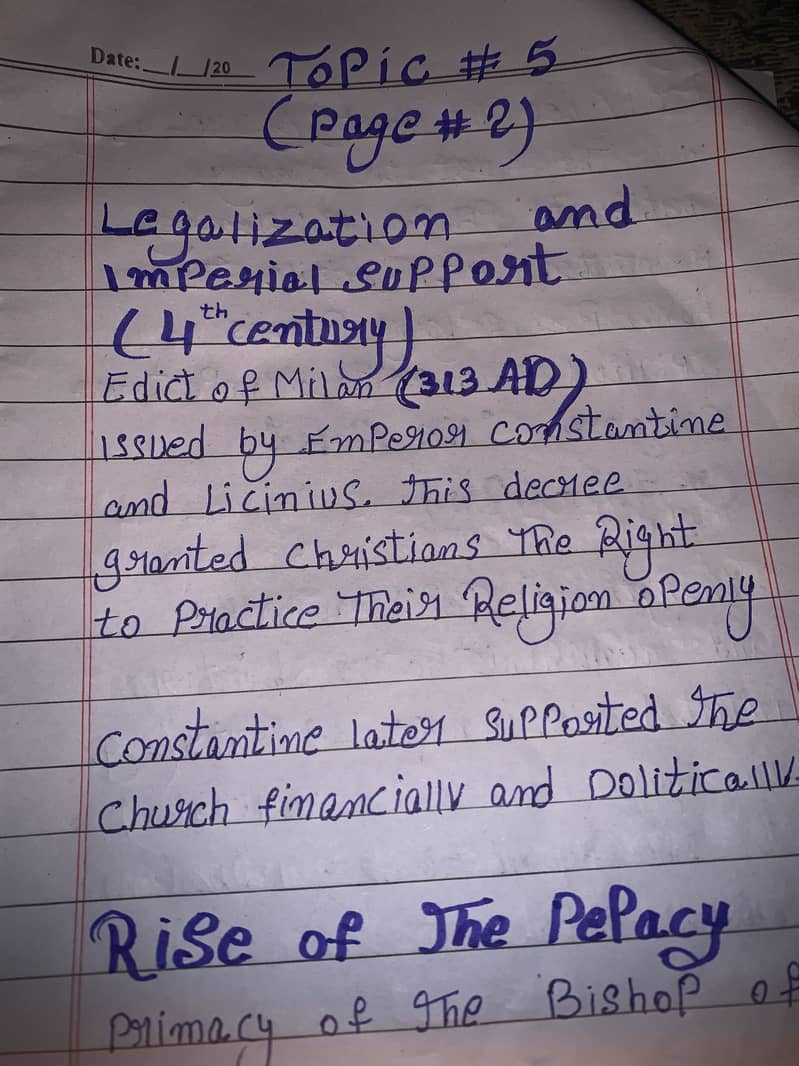 Date: __/__/20__
Topic # 5
(Page # 2)
Legalization and
Imperial support
(4th century)
Edict of Milan (313 AD)
issued by Emperor constantine
and Licinius. This decree
granted christians The Right
to Practice Their Religion openly
constantine later supported The
church financially and politically.
Rise of The Pepacy
primacy of The Bishop of